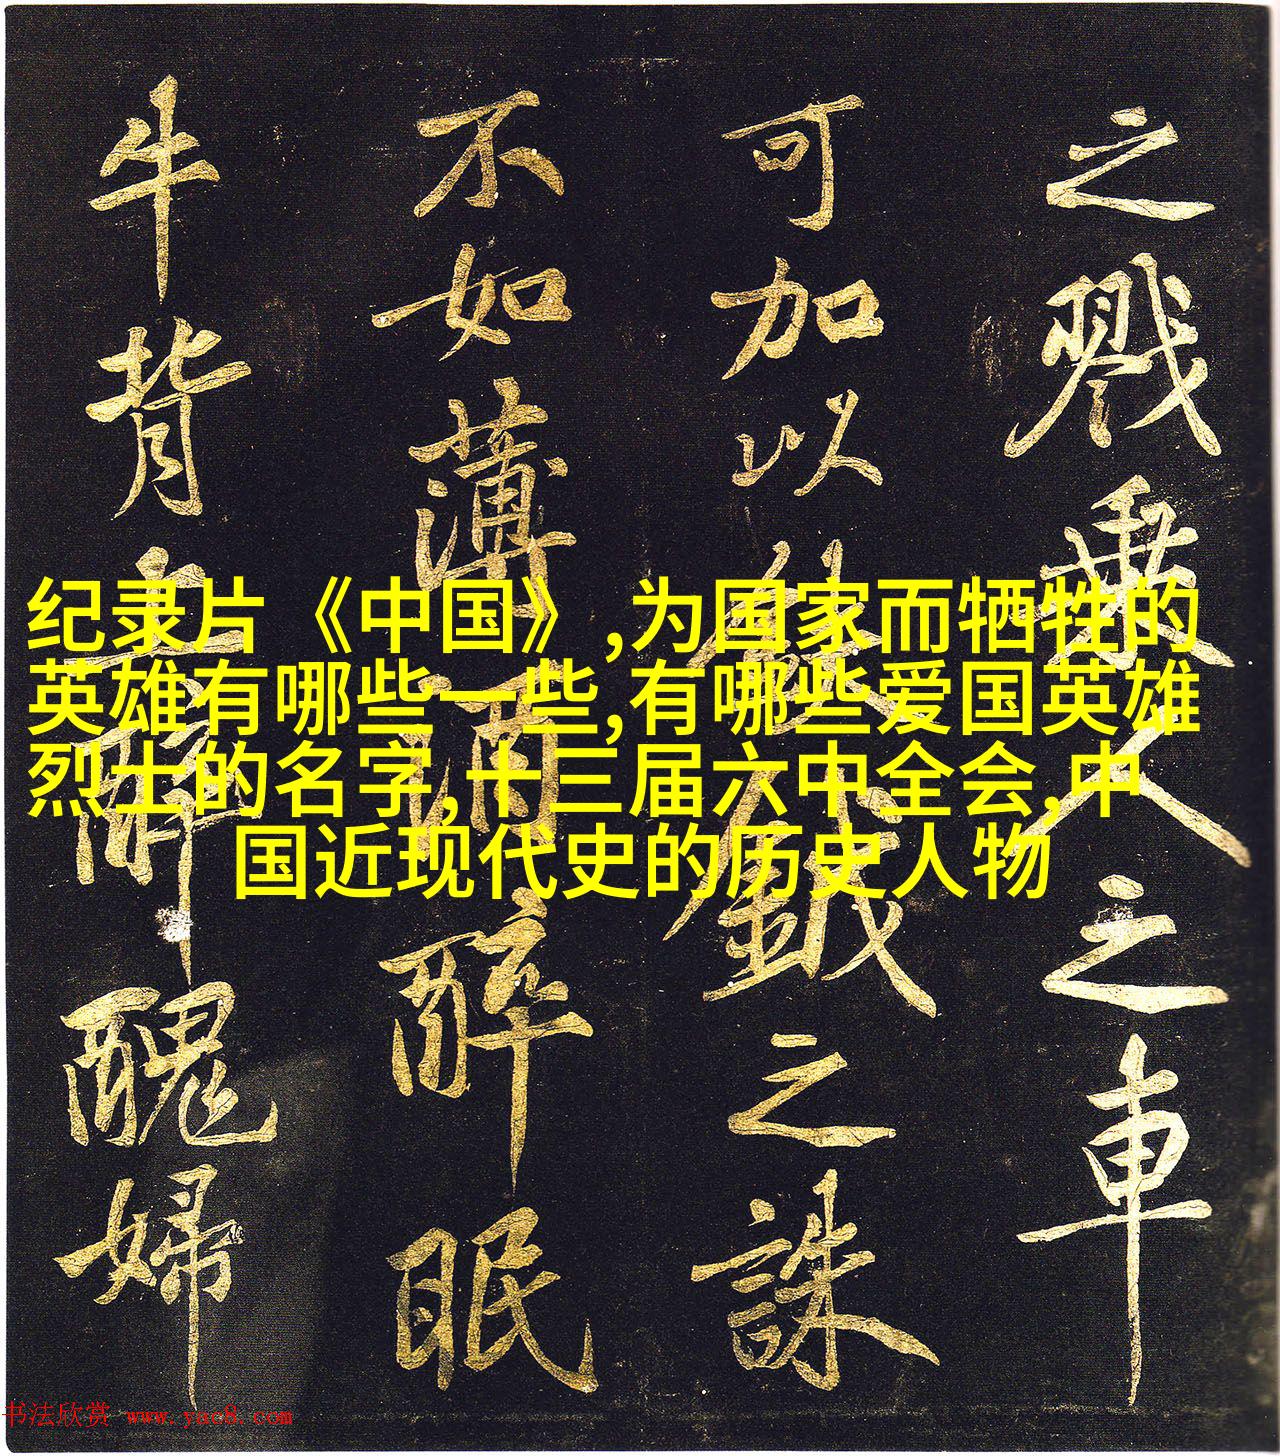 之戮乘人之車
可加以鈇鉞之誅
不如薄酒醉眠
牛背上醜婦
纪录片《中国》,为国家而牺牲的
英雄有哪些一些,有哪些爱国英雄
烈士的名字,十三届六中全会,中
国近现代史的历史人物
书法欣赏 www.yac8.com